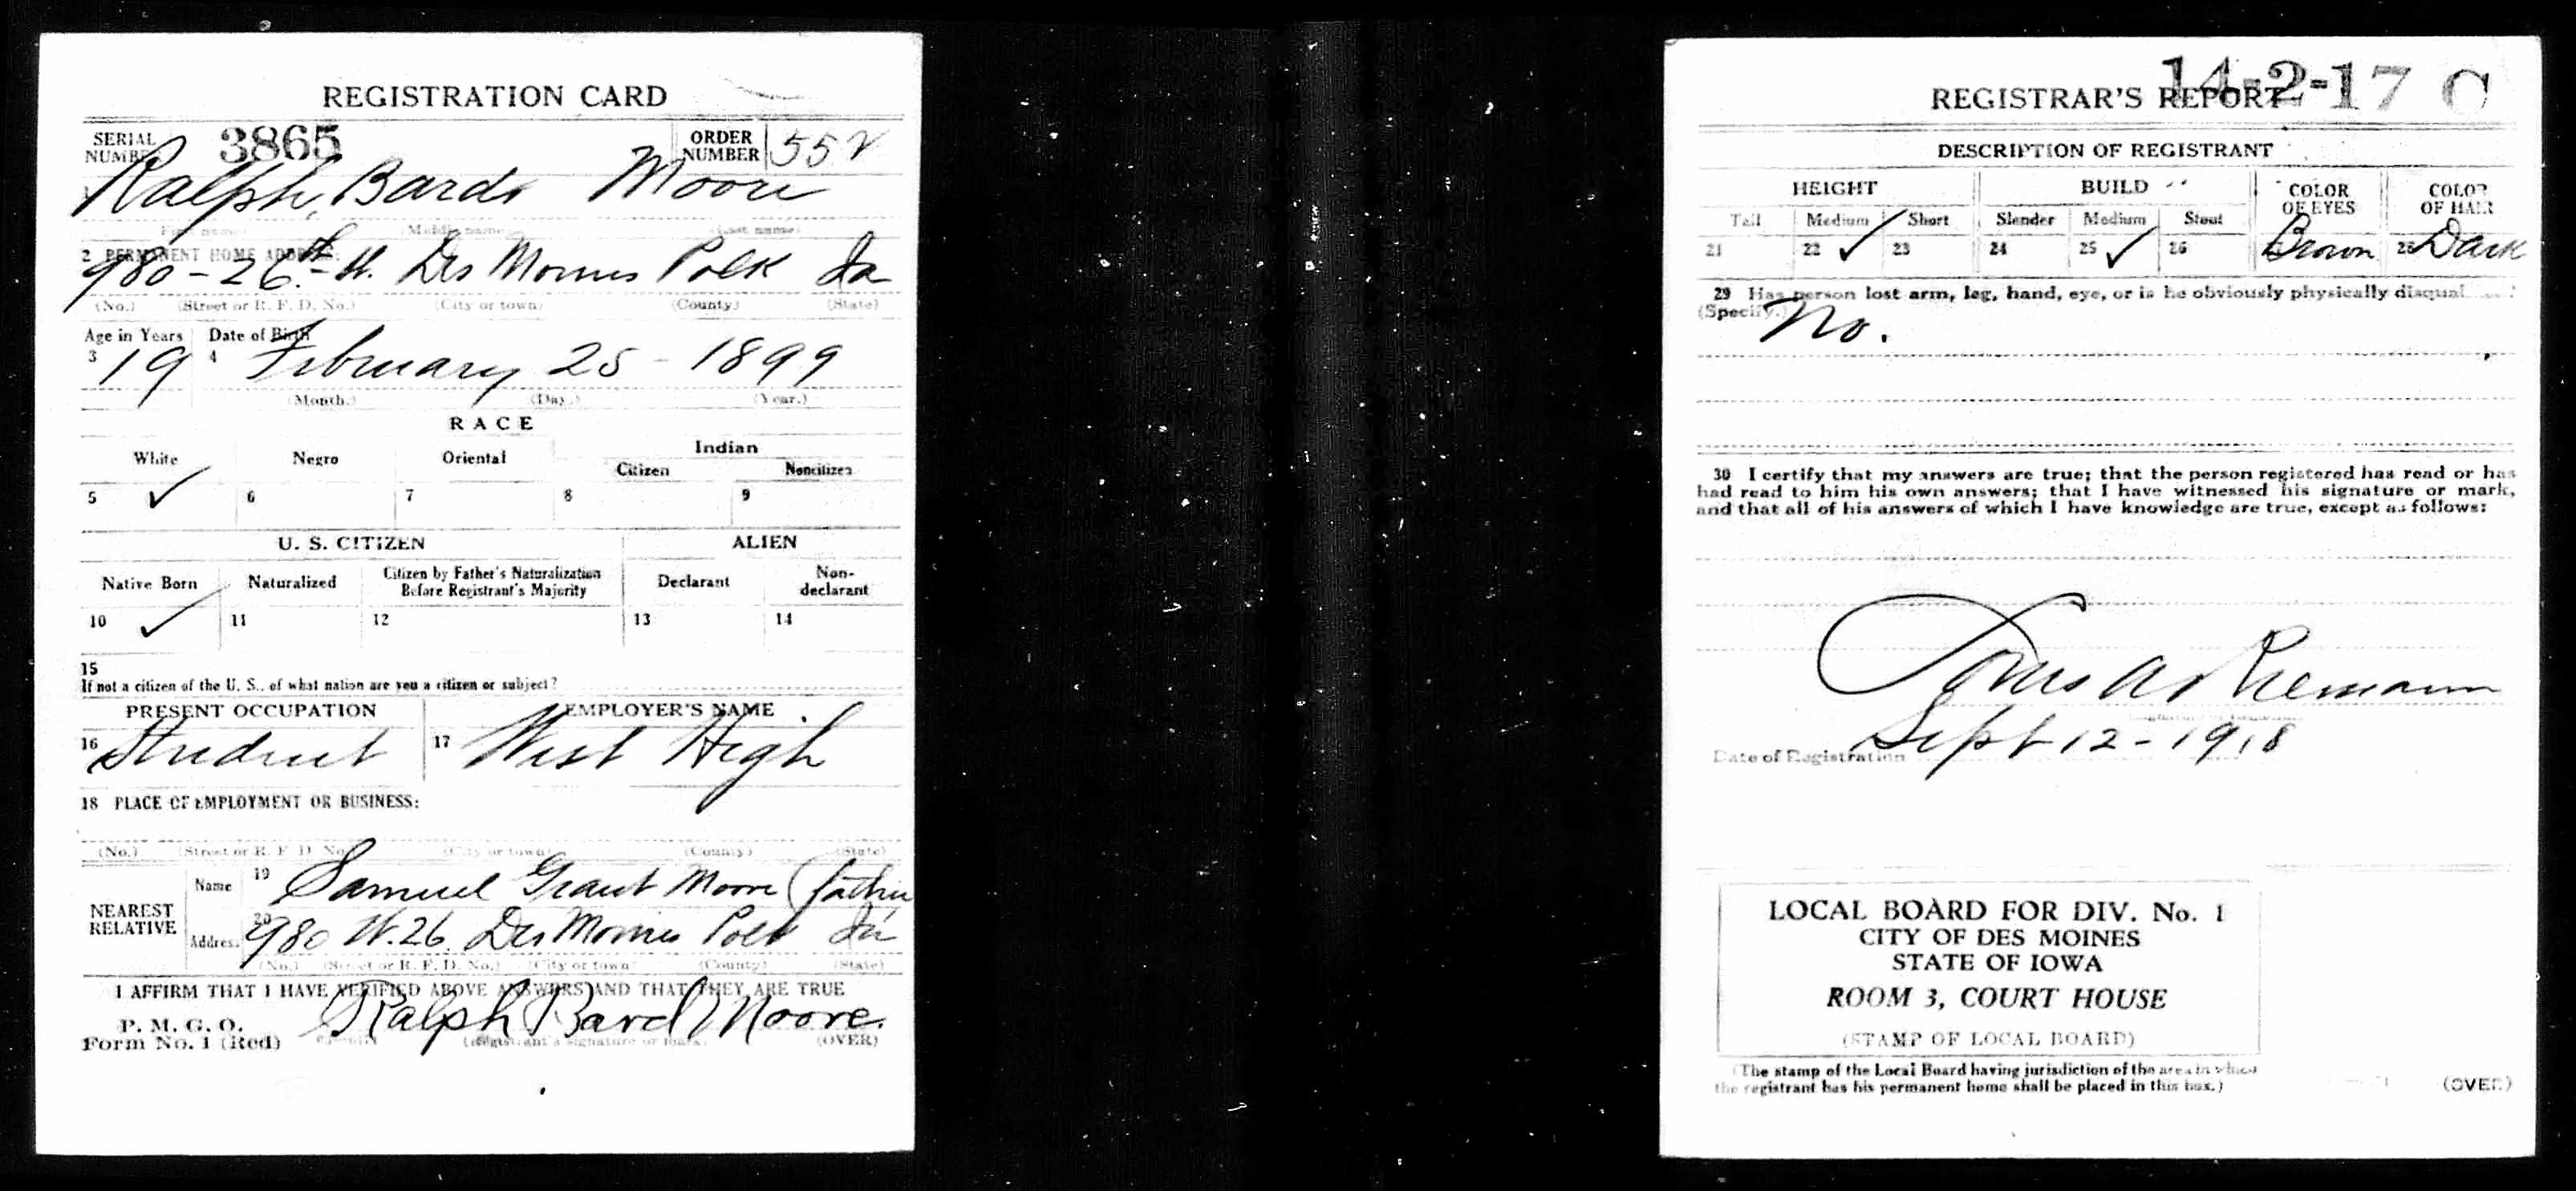 REGISTRATION CARD
SERIAL NUMBER 3865 ORDER NUMBER 552
1 Ralph, Bard Moore
(First name) (Middle name) (Last name)
2 PERMANENT HOME ADDRESS:
980 - 26th St. Des Moines Polk Ia
(No.) (Street or R. F. D. No.) (City or town) (County) (State)
Age in Years Date of Birth
3 19 4 February 25 - 1899
(Month.) (Day.) (Year.)
RACE
White Negro Oriental Indian
Citizen Noncitizen
5 ✓ 6 7 8 9
U. S. CITIZEN ALIEN
Native Born Naturalized Citizen by Father's Naturalization Before Registrant's Majority Declarant Non-declarant
10 ✓ 11 12 13 14
15
If not a citizen of the U. S., of what nation are you a citizen or subject?
PRESENT OCCUPATION EMPLOYER'S NAME
16 Student 17 West High
18 PLACE OF EMPLOYMENT OR BUSINESS:
(No.) (Street or R. F. D. No.) (City or town) (County) (State)
NEAREST RELATIVE Name 19 Samuel Grant Moore (father
Address 20 980 W. 26 Des Moines Polk Ia
(No.) (Street or R. F. D. No.) (City or town) (County) (State)
I AFFIRM THAT I HAVE VERIFIED ABOVE ANSWERS AND THAT THEY ARE TRUE
P. M. G. O.
Form No. 1 (Red) Ralph Bard Moore.
(Registrant's signature or mark) (OVER)
14-2-17 C
REGISTRAR'S REPORT
DESCRIPTION OF REGISTRANT
HEIGHT BUILD COLOR OF EYES COLOR OF HAIR
Tall Medium Short Slender Medium Stout
21 22 ✓ 23 24 25 ✓ 26 Brown 28 Dark
29 Has person lost arm, leg, hand, eye, or is he obviously physically disqual
(Specify.) No.
30 I certify that my answers are true; that the person registered has read or has
had read to him his own answers; that I have witnessed his signature or mark,
and that all of his answers of which I have knowledge are true, except as follows:
Date of Registration Sept 12 - 1918
LOCAL BOARD FOR DIV. No. 1
CITY OF DES MOINES
STATE OF IOWA
ROOM 3, COURT HOUSE
(STAMP OF LOCAL BOARD)
(The stamp of the Local Board having jurisdiction of the area in which
the registrant has his permanent home shall be placed in this box.)
(OVER)